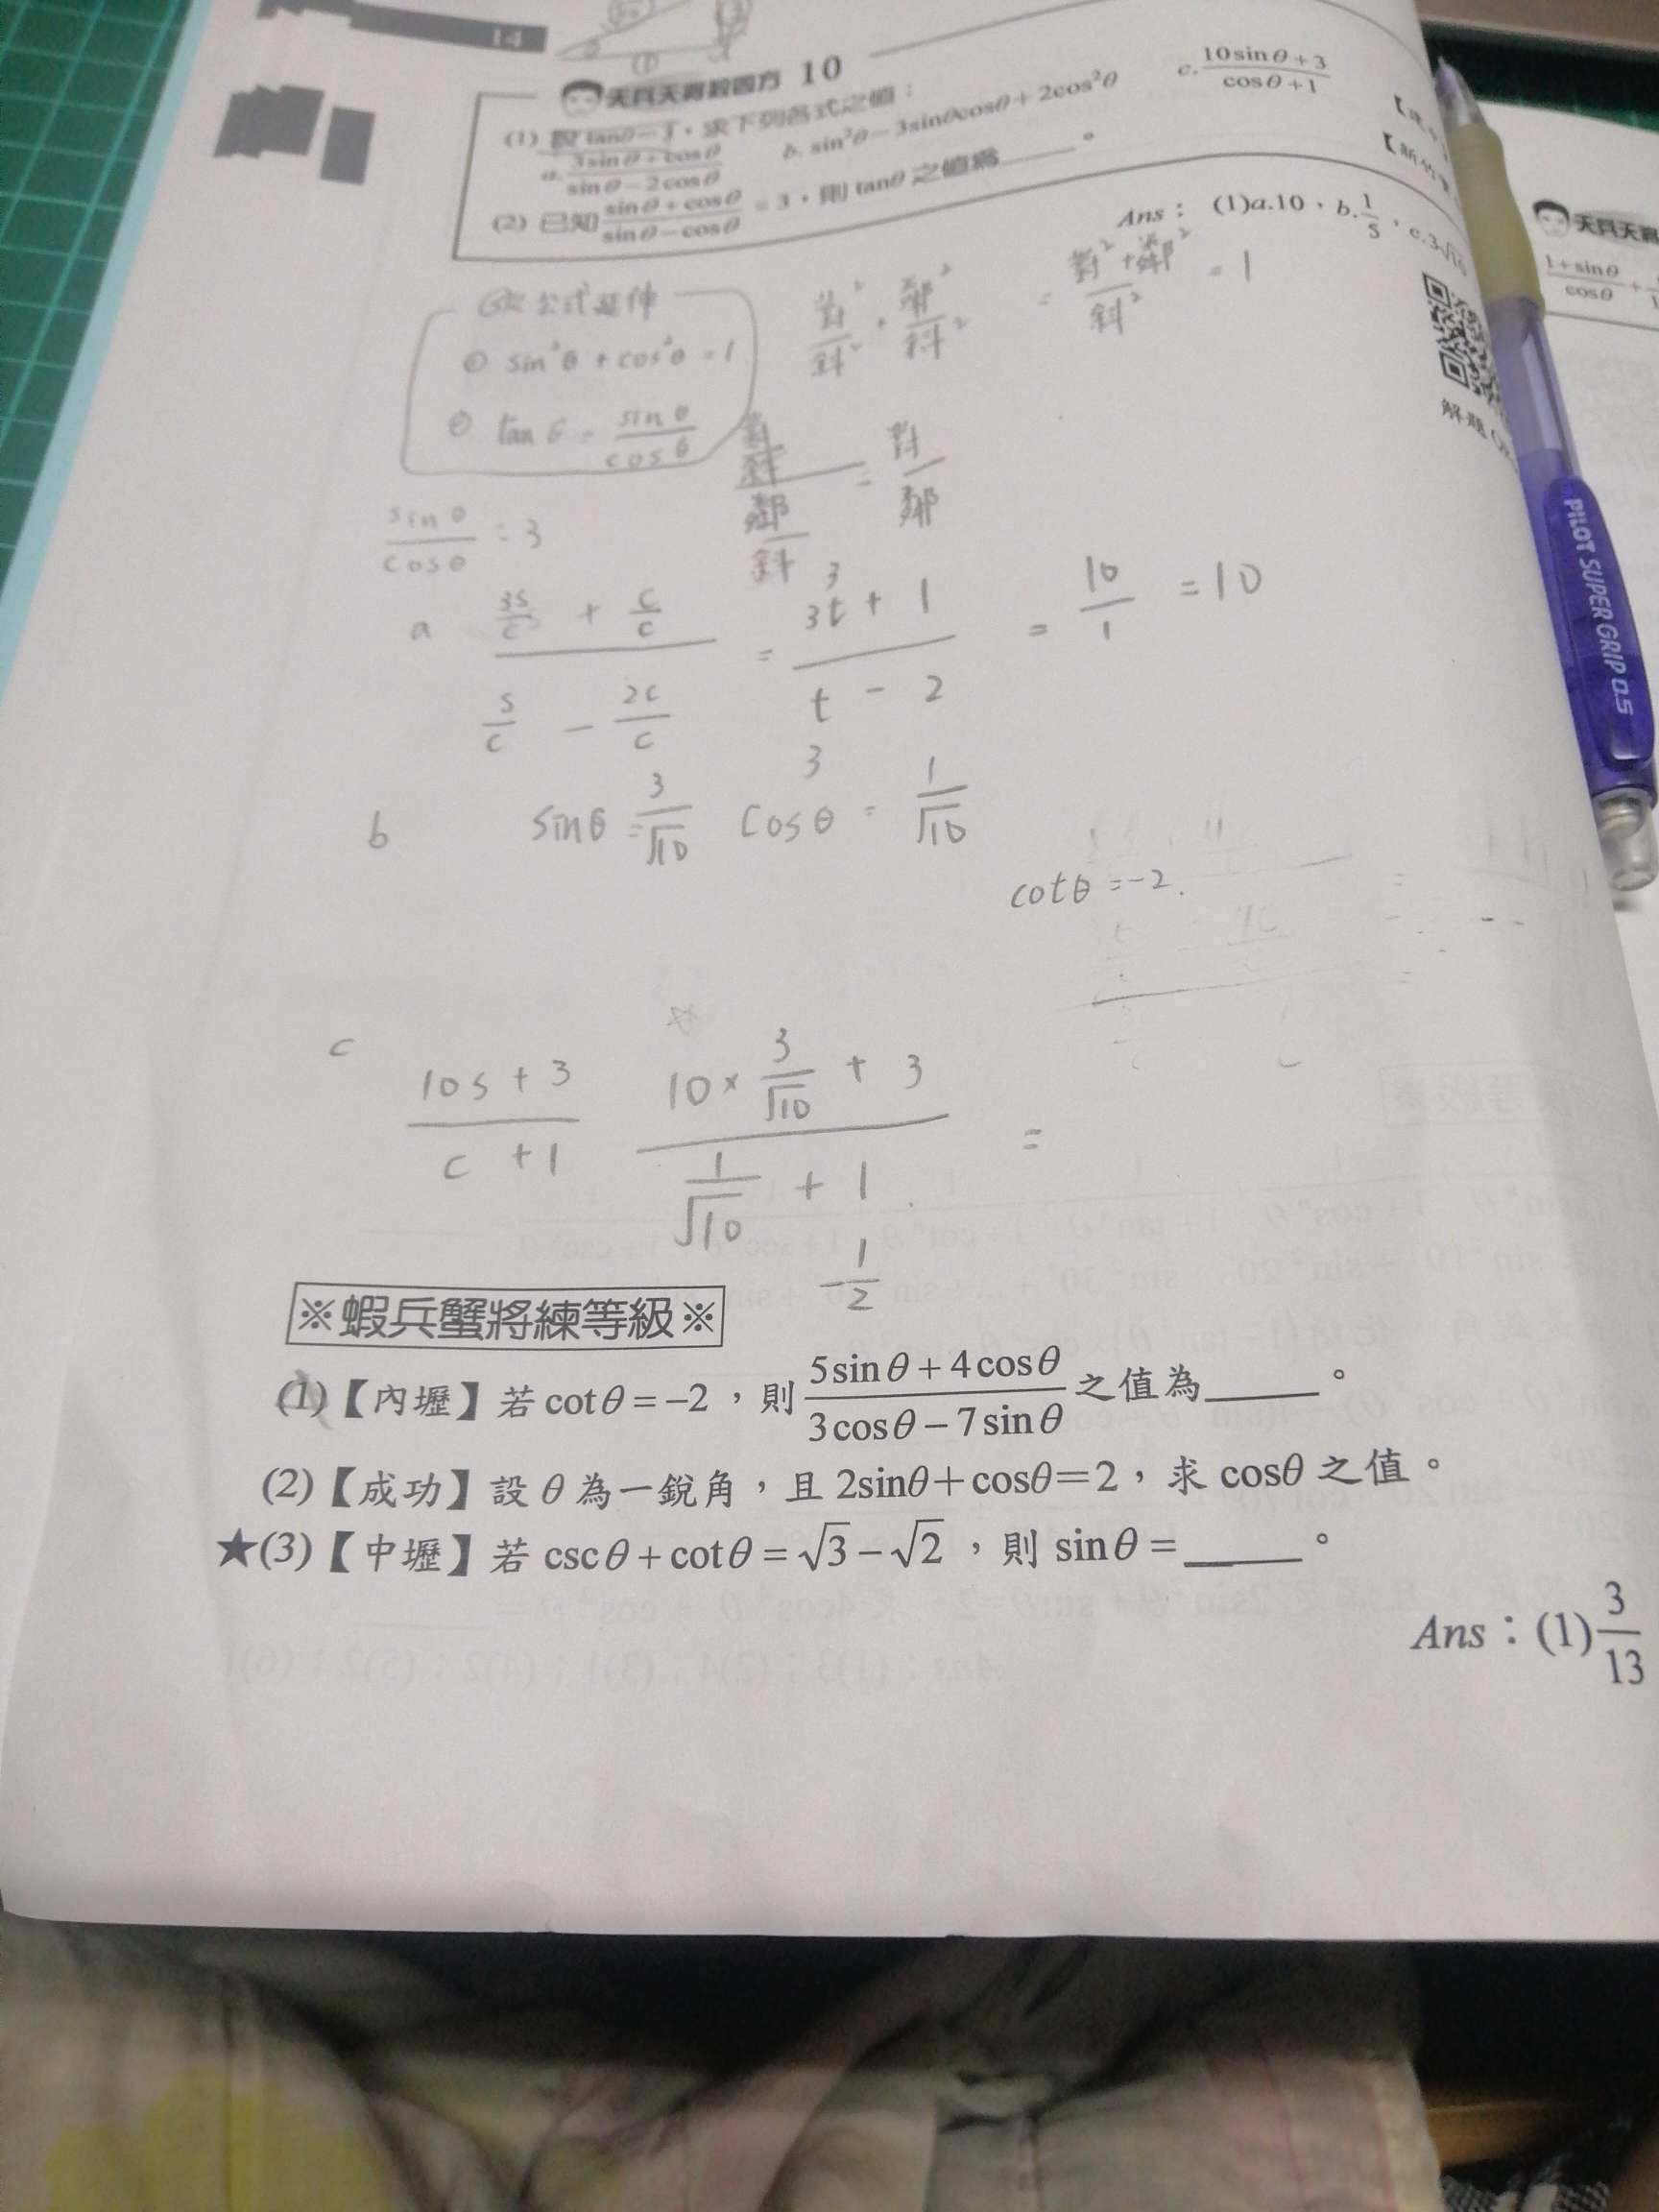 14
天貝天尋救四方 10
(1) 設 tanθ=3,求下列各式之值:
a. (3sinθ+cosθ)/(sinθ−2cosθ)  b. sin²θ−3sinθcosθ+2cos²θ  c. (10sinθ+3)/(cosθ+1)
(2) 已知 (sinθ+cosθ)/(sinθ−cosθ) = 3,則 tanθ 之值為_____。
Ans: (1)a.10,b.1/5,c.3√10
解題
公式延伸
sin²θ + cos²θ = 1
tanθ = sinθ/cosθ
對²/斜² + 鄰²/斜² = (對²+鄰²)/斜² = 1
(對/斜)/(鄰/斜) = 對/鄰
sinθ/cosθ = 3
a (3s/c + c/c)/(s/c − 2c/c) = (3t + 1)/(t − 2) = 10/1 = 10
3
3
b sinθ = 3/√10 cosθ = 1/√10
cotθ = −2.
c (10s + 3)/(c + 1) (10 × 3/√10 + 3)/(1/√10 + 1) =
−1/2
※蝦兵蟹將練等級※
(1)【內壢】若 cotθ = −2,則 (5sinθ + 4cosθ)/(3cosθ − 7sinθ) 之值為_____。
(2)【成功】設 θ 為一銳角,且 2sinθ+cosθ=2,求 cosθ 之值。
★(3)【中壢】若 cscθ + cotθ = √3 − √2,則 sinθ = _____。
Ans:(1)3/13
天貝天尋
(1+sinθ)/cosθ +
PILOT SUPER GRIP 0.5